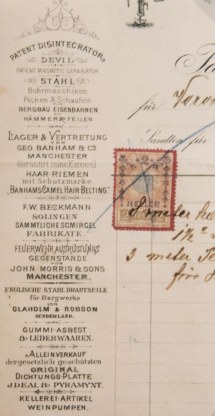 PATENT DISINTECRATOR
DEVIL
PATENT MAGNETIC SEPARATOR
STAHL
Bohrmaschinen
Picken & Schaufeln
BERGBAU EISENBAHNEN
HÄMMER & FEILEN
LAGER & VERTRETUNG
VON
GEO. BANHAM & Cº
MANCHESTER
HAAR-RIEMEN
mit Schutzmarke
"BANHAMS CAMEL HAIR BELTING"
F.W. BECKMANN
SOLINGEN
SÄMMTLICHE SCHMIRGEL
FABRIKATE.
FEUERWEHR AUSRÜSTUNGS
GEGENSTÄNDE
von
JOHN MORRIS & SONS
MANCHESTER.
ENGLISCHE STAHL DRAHTSEILE
für Bergwerke
von
GLAHOLM & ROBSON
SUNDERLAND.
GUMMI-ASBEST
& LEDERWAAREN.
ALLEINVERKAUF
der gesetzlich geschützten
ORIGINAL
DICHTUNGS-PLATTE
IDEAL & PYRAMYNT.
KELLEREI-ARTIKEL
WEINPUMPEN.
für
Sandten per
2
HELLER
3 meter